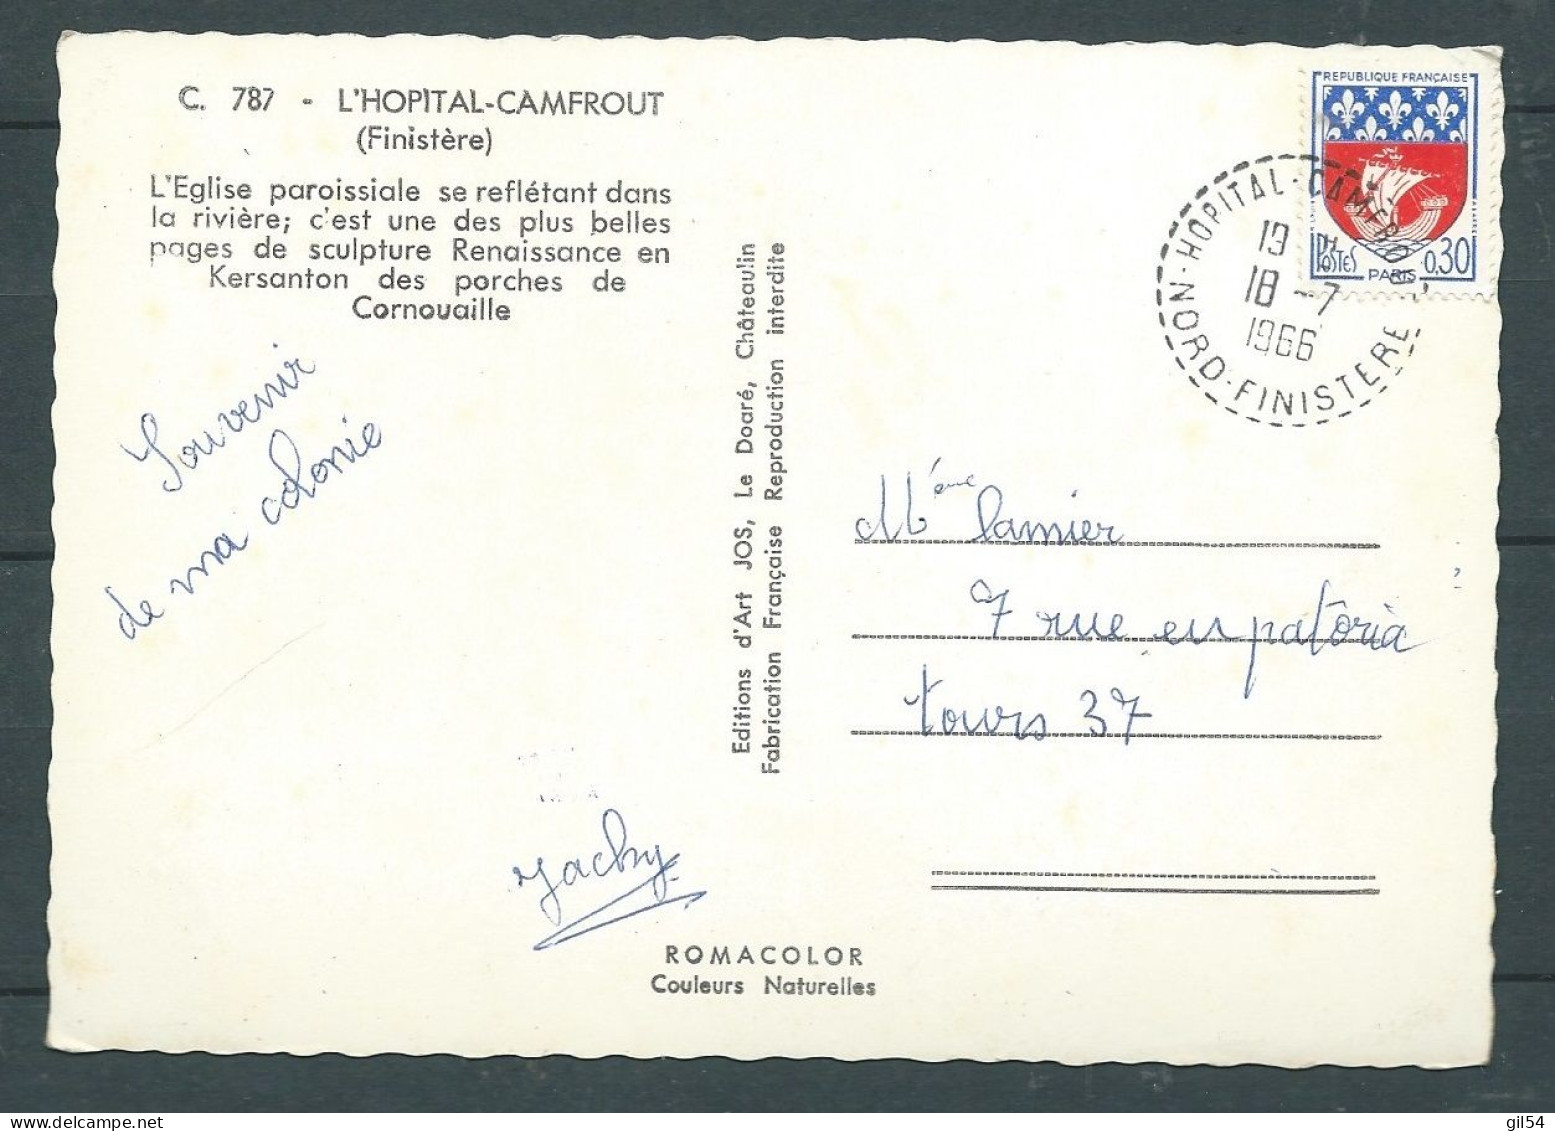 C. 787 - L'HOPITAL-CAMFROUT
(Finistère)
L'Eglise paroissiale se reflétant dans
la rivière; c'est une des plus belles
pages de sculpture Renaissance en
Kersanton des porches de
Cornouaille
Souvenir
de ma colonie
Jacky
Editions d'Art JOS, Le Doaré, Châteaulin
Fabrication Française Reproduction interdite
ROMACOLOR
Couleurs Naturelles
REPUBLIQUE FRANÇAISE
POSTES
0,30
PARIS
HOPITAL-CAMFROUT
NORD-FINISTERE
19 H
18 -7
1966
Mème Lamier
7 rue eupatôria
tours 37
gil54